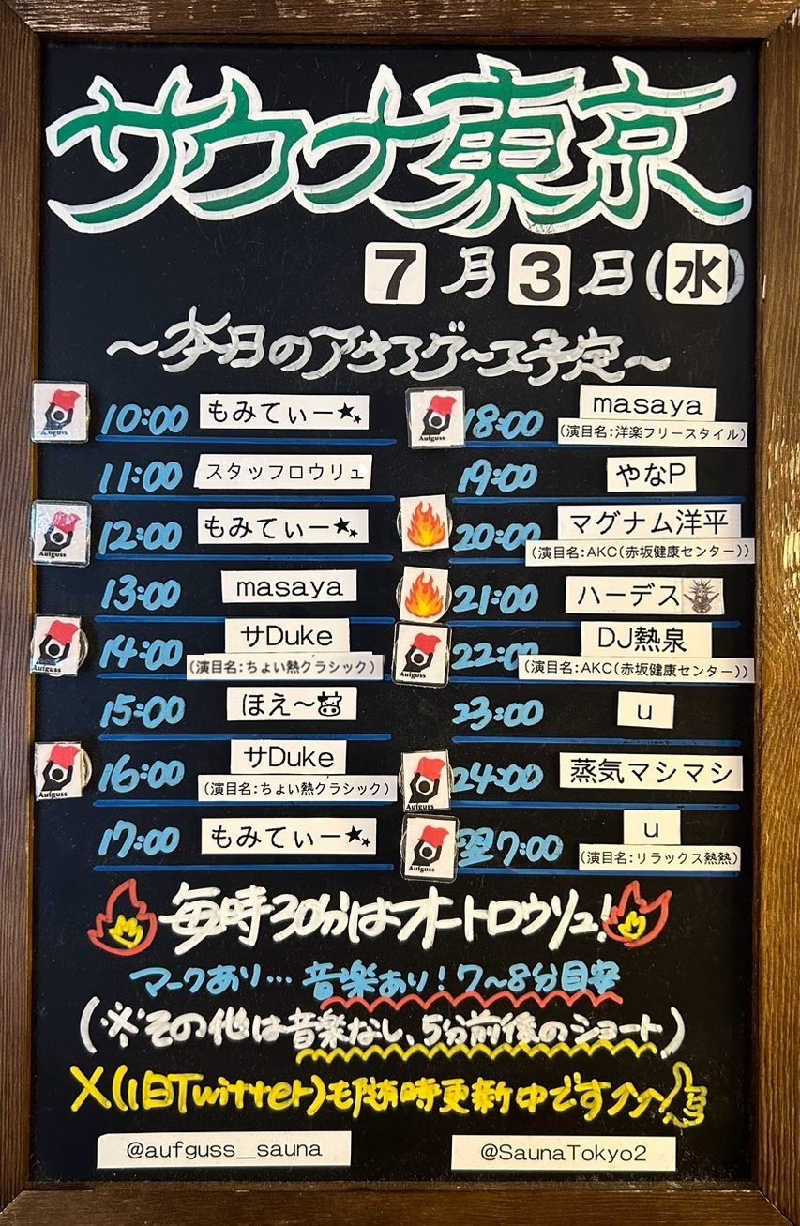 サウナ東京
7月3日(水)
～本日のアウフグース予定～
Aufguss 10:00 もみてぃー★★
11:00 スタッフロウリュ
Aufguss 12:00 もみてぃー★★
13:00 masaya
Aufguss 14:00 サDuke
(演目名:ちょい熱クラシック)
15:00 ほえ～
Aufguss 16:00 サDuke
(演目名:ちょい熱クラシック)
17:00 もみてぃー★★
Aufguss 18:00 masaya
(演目名:洋楽フリースタイル)
19:00 やなP
20:00 マグナム洋平
(演目名:AKC(赤坂健康センター))
21:00 ハーデス
Aufguss 22:00 DJ熱泉
(演目名:AKC(赤坂健康センター))
23:00 u
Aufguss 24:00 蒸気マシマシ
Aufguss 翌7:00 u
(演目名:リラックス熱熱)
毎時30分はオートロウリュ!
マークあり…音楽あり!7～8分目安
(※その他は音楽なし、5分前後のショート)
X(旧Twitter)も随時更新中です↗↗
@aufguss_sauna
@SaunaTokyo2